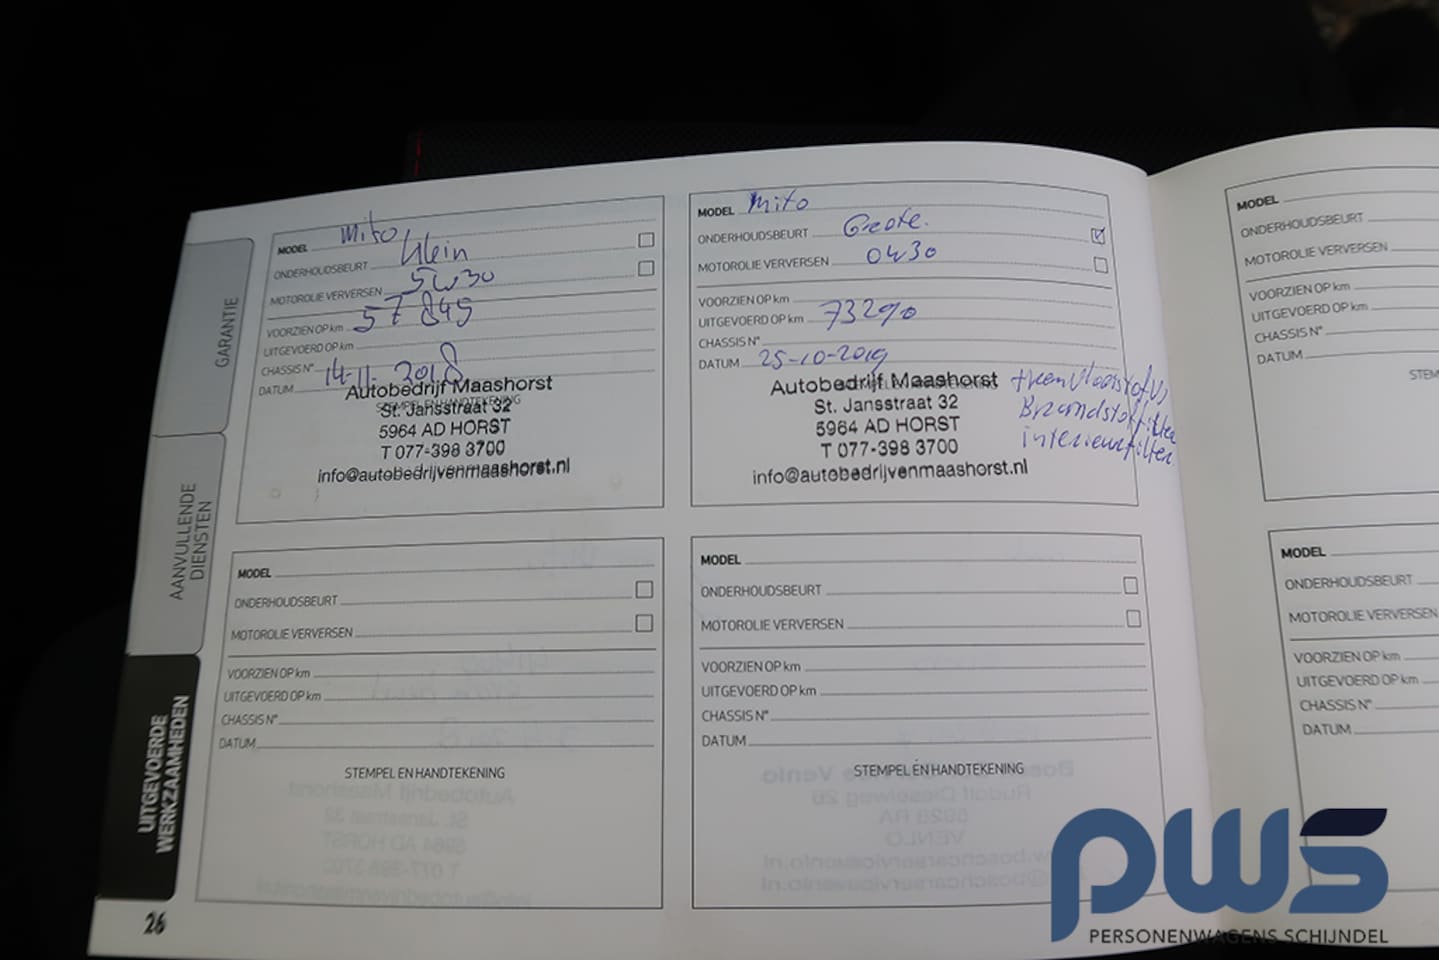 MODEL Mito
ONDERHOUDSBEURT Klein
MOTOROLIE VERVERSEN 5w30
VOORZIEN OP km 57 845
UITGEVOERD OP km
CHASSIS N°
DATUM 14-11-2018
STEMPEL EN HANDTEKENING
Autobedrijf Maashorst
St. Jansstraat 32
5964 AD HORST
T 077-398 3700
info@autobedrijvenmaashorst.nl
MODEL Mito
ONDERHOUDSBEURT Groote.
MOTOROLIE VERVERSEN 0w30
VOORZIEN OP km
UITGEVOERD OP km 73290
CHASSIS N°
DATUM 25-10-2019
STEMPEL EN HANDTEKENING
Autobedrijf Maashorst
St. Jansstraat 32
5964 AD HORST
T 077-398 3700
info@autobedrijvenmaashorst.nl
Brandstoffilter
interieurfilter
MODEL
ONDERHOUDSBEURT
MOTOROLIE VERVERSEN
VOORZIEN OP km
UITGEVOERD OP km
CHASSIS N°
DATUM
STEM
MODEL
ONDERHOUDSBEURT
MOTOROLIE VERVERSEN
VOORZIEN OP km
UITGEVOERD OP km
CHASSIS N°
DATUM
STEMPEL EN HANDTEKENING
MODEL
ONDERHOUDSBEURT
MOTOROLIE VERVERSEN
VOORZIEN OP km
UITGEVOERD OP km
CHASSIS N°
DATUM
STEMPEL EN HANDTEKENING
MODEL
ONDERHOUDSBEURT
MOTOROLIE VERVERSEN
VOORZIEN OP km
UITGEVOERD OP km
CHASSIS N°
DATUM
GARANTIE
AANVULLENDE
DIENSTEN
UITGEVOERDE
WERKZAAMHEDEN
26
pws
PERSONENWAGENS SCHIJNDEL